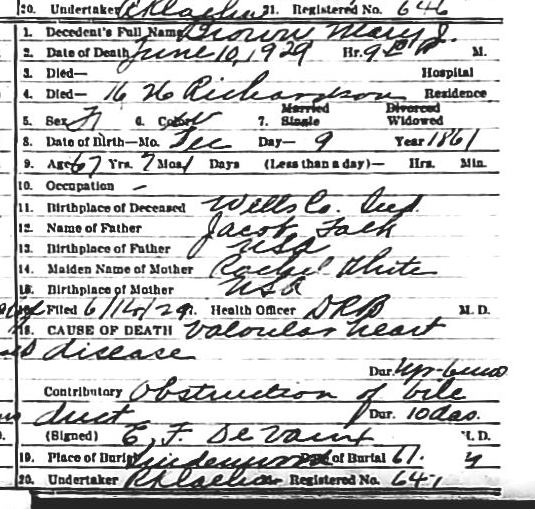 20. Undertaker Klaehn 21. Registered No. 646
1. Decedent's Full Name Brown Mary J.
2. Date of Death June 10, 1929 Hr. 9 P M.
3. Died— Hospital
4. Died— 16 N Richardson Residence
5. Sex F 6. Color W 7. Married Single Divorced Widowed
8. Date of Birth—Mo. Dec Day— 9 Year 1861
9. Age 67 Yrs. 7 Mos. 1 Days (Less than a day)— Hrs. Min.
10. Occupation –
11. Birthplace of Deceased Wells Co. Ind.
12. Name of Father Jacob
13. Birthplace of Father USA
14. Maiden Name of Mother Rachel White
15. Birthplace of Mother USA
Filed 6/14/29 Health Officer DRB M. D.
18. CAUSE OF DEATH Valvular heart
disease
Dur. 4yr-6mo
Contributory Obstruction of bile
duct Dur. 10 das.
(Signed) E. F. DeVaux M. D.
19. Place of Burial Lindenwood Date of Burial 61.
20. Undertaker Klaehn Registered No. 647